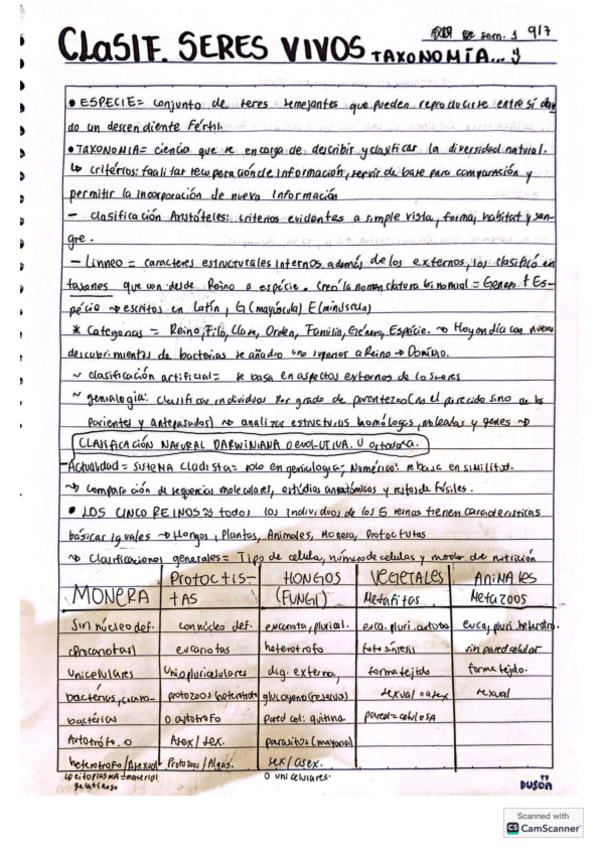 sem. 1 9/7
CLASIF. SERES VIVOS TAXONOMÍA... :)
• ESPECIE = conjunto de seres semejantes que pueden reproducirse entre sí dan
do un descendiente fértil.
• TAXONOMIA = ciencia que se encarga de describir y clasificar la diversidad natural.
↳ critérios: facilitar recuperación de información, servir de base para comparación y
permitir la incorporación de nueva información
- clasificación Aristóteles: criterios evidentes a simple vista, forma, habitat y san-
gre.
- Linneo = caracteres estructurales internos además de los externos, los clasificó en
taxones que van desde Reino a espécie. Creó la nomenclatura binomial = Genero + Es-
pécie → escritos en Latín, G(mayúscula) E(minúscula)
* Categorias = Reino, Filo, Clase, Orden, Familia, Género, Espécie. → Hoy en día con nuevos
descubrimientos de bacterias se añadio uno superios a Reino → Domínio.
~ clasificación artificial = se basa en aspectos externos de los seres
~ genialogia: clasificar individuos por grado de parentezco (no el parecido sino de los
parientes y antepasados) → analizar estructuras homólogas, moleculas y genes →
CLASIFICACIÓN NATURAL DARWINIANA O EVOLUTIVA. U ortodoxa.
- Actualidad = SISTEMA Cladista = solo en genialogia; Numérico: se basa en similitud.
→ Comparación de sequencias moleculares, estúdios anatómicos y restos de fósiles.
• LOS CINCO REINOS → todos los individuos de los 5 reinos tienen caracteristicas
básicas iguales → Hongos, Plantas, Animales, Monera, Protoctistas
→ Clasificaciones generales = Tipo de celula, número de celulas y modo de nutrición
MONERA PROTOCTIS- HONGOS VEGETALES ANIMALES
TAS (FUNGI) Metafitas Metazoos
Sin núcleo def. con núcleo def. eucariota, plurial. euca. pluri. autotro euca, pluri. heterotro.
(Procariotas) eucariotas heterotrofo fotosíntesis sin pared celular
Unicelulares Uni o pluricelulares dig. externa, forma tejido forma tejido.
bactérias, ciano- protozoos heterotrofo glucogeno (reserva) sexual o asex sexual
bactérias o autotrofo pared cel: quitina pared = celulosa
Autotrófo o Asex / sex. parasitos (mayoria)
heterotrofo / Asexual Protozoos / Algas. sex / asex.
↳ citoplasma = material O unicelulares.
gelatinoso
DUSON
Scanned with
CS CamScanner